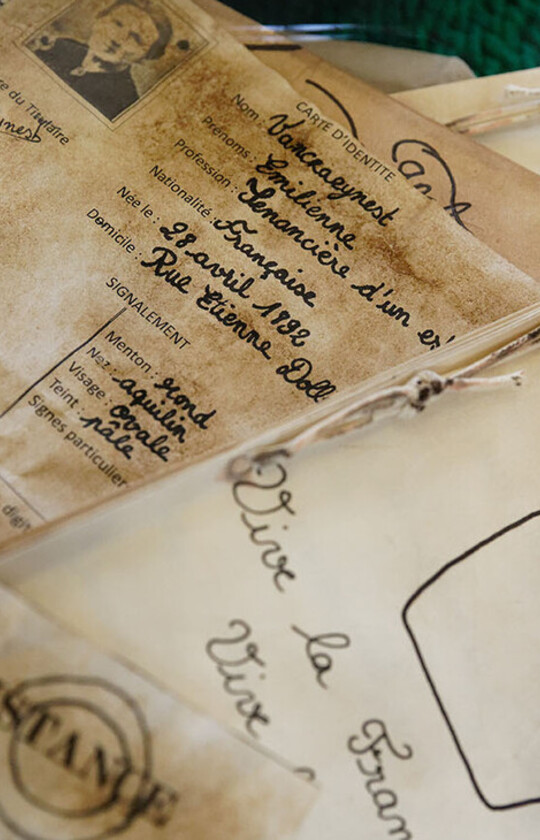 CARTE D'IDENTITE
Nom : Vancraeynest
Prénoms : Emilienne
Profession : Tenancière d'un
Nationalité : Française
Née le : 28 avril 1892
Domicile : Rue Etienne
SIGNALEMENT
Menton : rond
Nez : aquilin
Visage : ovale
Teint : pâle
Signes particulier
du Titulaire
Vive la
Vive